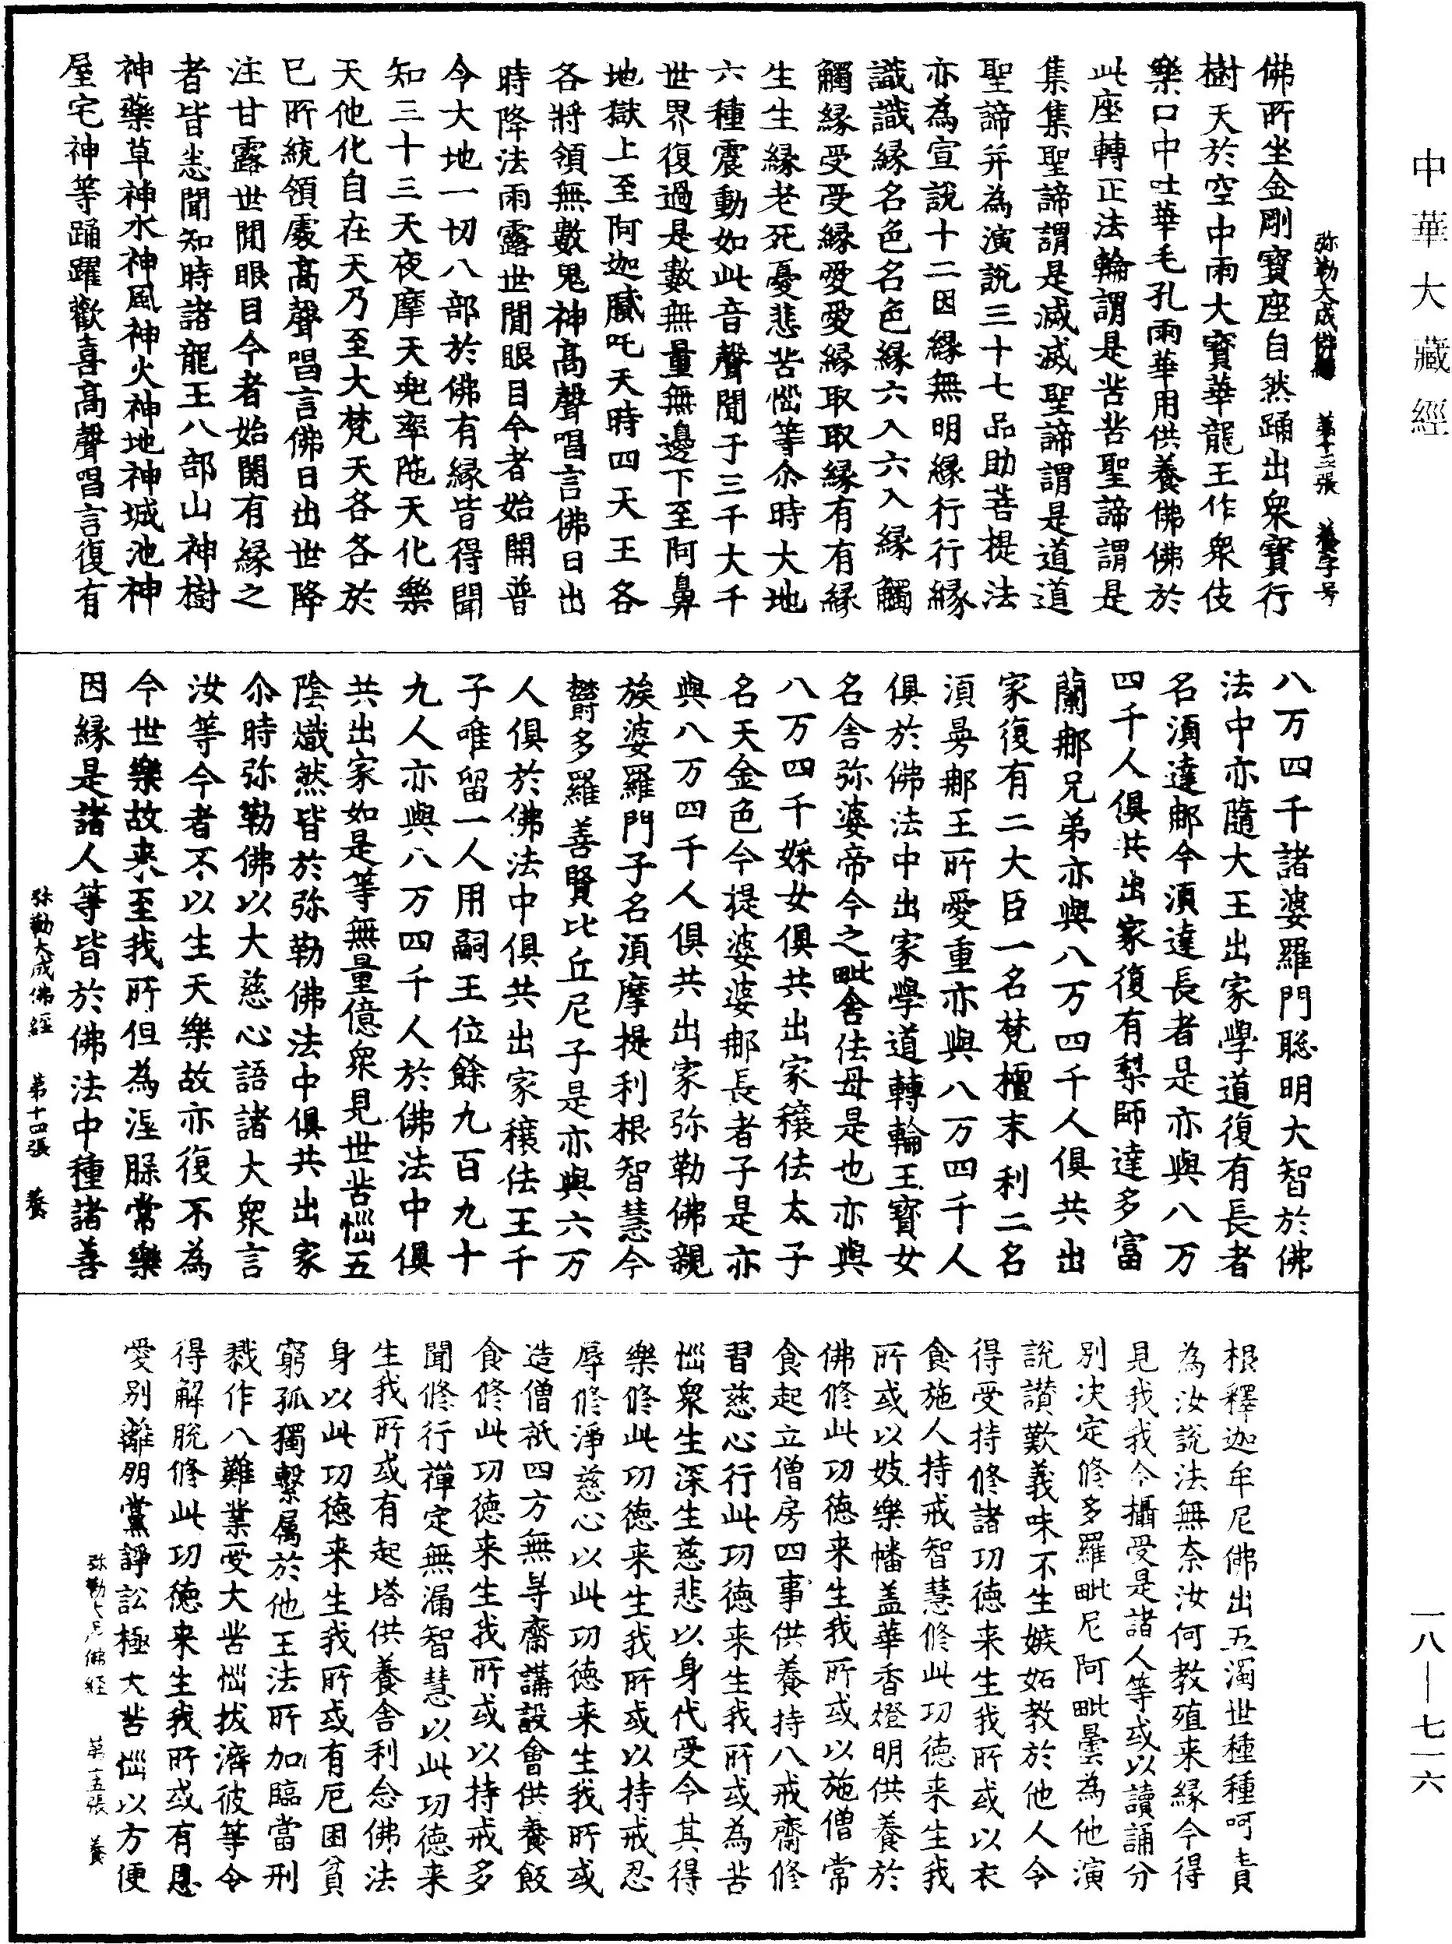 中華大藏經
弥勒大成佛經　第十三張　養字号
佛所坐金剛寶座自然踊出衆寶行
樹天於空中雨大寶華龍王作衆伎
樂口中吐華毛孔雨華用供養佛佛於
此座轉正法輪謂是苦苦聖諦謂是
集集聖諦謂是滅滅聖諦謂是道道
聖諦并為演説三十七品助菩提法
亦為宣説十二因縁無明縁行行縁
識識縁名色名色縁六入六入縁觸
觸縁受受縁愛愛縁取取縁有有縁
生生縁老死憂悲苦惱等尒時大地
六種震動如此音聲聞于三千大千
世界復過是數無量無邊下至阿鼻
地獄上至阿迦膩吒天時四天王各
各將領無數鬼神高聲唱言佛日出
時降法雨露世間眼目今者始開普
令大地一切八部於佛有縁皆得聞
知三十三天夜摩天兜率陁天化樂
天他化自在天乃至大梵天各各於
已所統領處高聲唱言佛日出世降
注甘露世間眼目今者始開有縁之
者皆悉聞知時諸龍王八部山神樹
神藥草神水神風神火神地神城池神
屋宅神等踊躍歡喜高聲唱言復有
八万四千諸婆羅門聡明大智於佛
法中亦隨大王出家學道復有長者
名湏達那今湏達長者是亦與八万
四千人俱共出家復有梨師達多富
蘭那兄弟亦與八万四千人俱共出
家復有二大臣一名梵檀末利二名
湏曼那王所愛重亦與八万四千人
俱於佛法中出家學道轉輪王寶女
名舍弥婆帝今之毗舍佉母是也亦與
八万四千婇女俱共出家穰佉太子
名天金色今提婆婆那長者子是亦
與八万四千人俱共出家弥勒佛親
族婆羅門子名湏摩提利根智慧今
欝多羅善賢比丘尼子是亦與六万
人俱於佛法中俱共出家穰佉王千
子唯留一人用嗣王位餘九百九十
九人亦與八万四千人於佛法中俱
共出家如是等無量億衆見世苦惱五
陰熾然皆於弥勒佛法中俱共出家
尒時弥勒佛以大慈心語諸大衆言
汝等今者不以生天樂故亦復不為
今世樂故来至我所但為涅槃常樂
因縁是諸人等皆於佛法中種諸善
弥勒大成佛經　第十四張　養
根釋迦牟尼佛出五濁世種種呵責
為汝説法無奈汝何教殖来縁今得
見我我今攝受是諸人等或以讀誦分
別决定修多羅毗尼阿毗曇為他演
説讃歎義味不生嫉妬教於他人令
得受持修諸功德来生我所或以衣
食施人持戒智慧修此功德来生我
所或以妓樂幡盖華香燈明供養於
佛修此功德来生我所或以施僧常
食起立僧房四事供養持八戒齋修
習慈心行此功德来生我所或為苦
惱衆生深生慈悲以身代受令其得
樂修此功德来生我所或以持戒忍
辱修淨慈心以此功德来生我所或
造僧祇四方無㝵齋講設會供養飯
食修此功德来生我所或以持戒多
聞修行禪定無漏智慧以此功德来
生我所或有起塔供養舍利念佛法
身以此功德来生我所或有厄困貧
窮孤獨繫属於他王法所加臨當刑
戮作八難業受大苦惱拔濟彼等令
得解脫修此功德来生我所或有恩
愛別離朋黨諍訟極大苦惱以方便
弥勒大成佛經　第十五張　養
一八—七一六